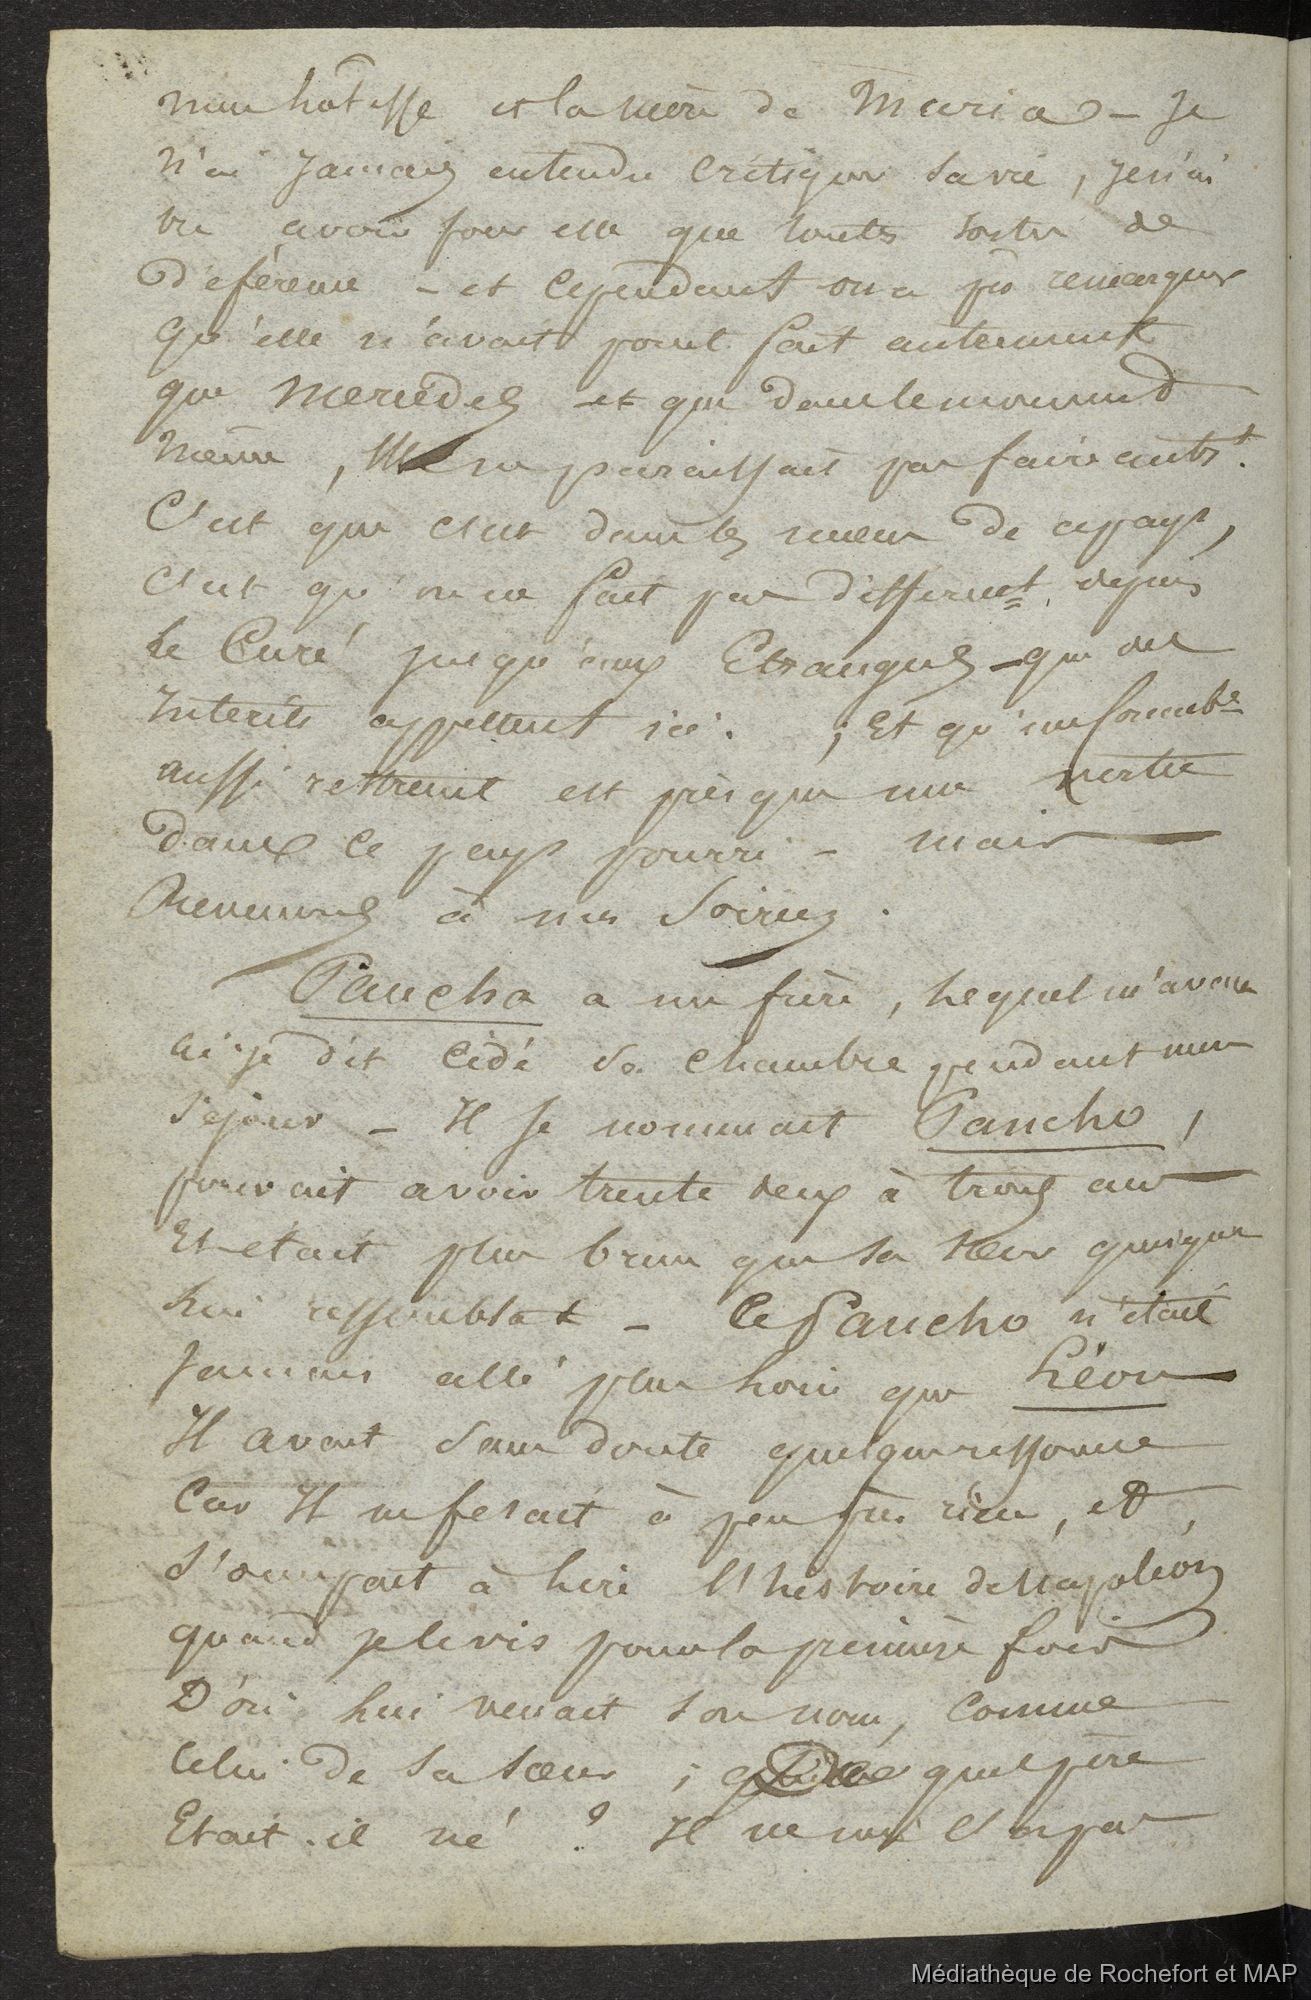 mon hôtesse est la mère de Maria – Je
n'ai Jamais entendu critiquer sa vie, Je n'ai
vu avoir pour elle que toutes sortes de
déférence – et Cependant on a pû remarquer
qu'elle n'avait point fait autrement
que Mercedes et que dans le moment
même, Elle ne paraissait pas faire autrt.
C'est que c'est dans les moeurs de ce pays,
c'est qu'on ne fait pas differemt. depuis
le Curé jusqu'aux Etrangers – que des
Interêts appellent ici. ; Et qu'un
aussi restreint est presque une vertu
dans ce pays pourri – mais
Revenons à nos Soirées.
Pancha a un frère, lequel m'avait
ai-je dit cédé sa chambre pendant mon
séjour – Il se nommait Pancho,
pouvait avoir trente deux à trois ans
Et était plus brun que sa soeur quoique
lui ressemblat – Ce Pancho n'était
Jamais allé plus loin que Léon
Il avait sans doute quelque ressource
Car Il ne fesait à peu près rien, et
s'occupait à lire l'histoire de Napoléon
quand je le vis pour la première fois
D'où lui venait son nom, comme
Celui de sa soeur ; quel père
Etait-il né ? Il ne me pas